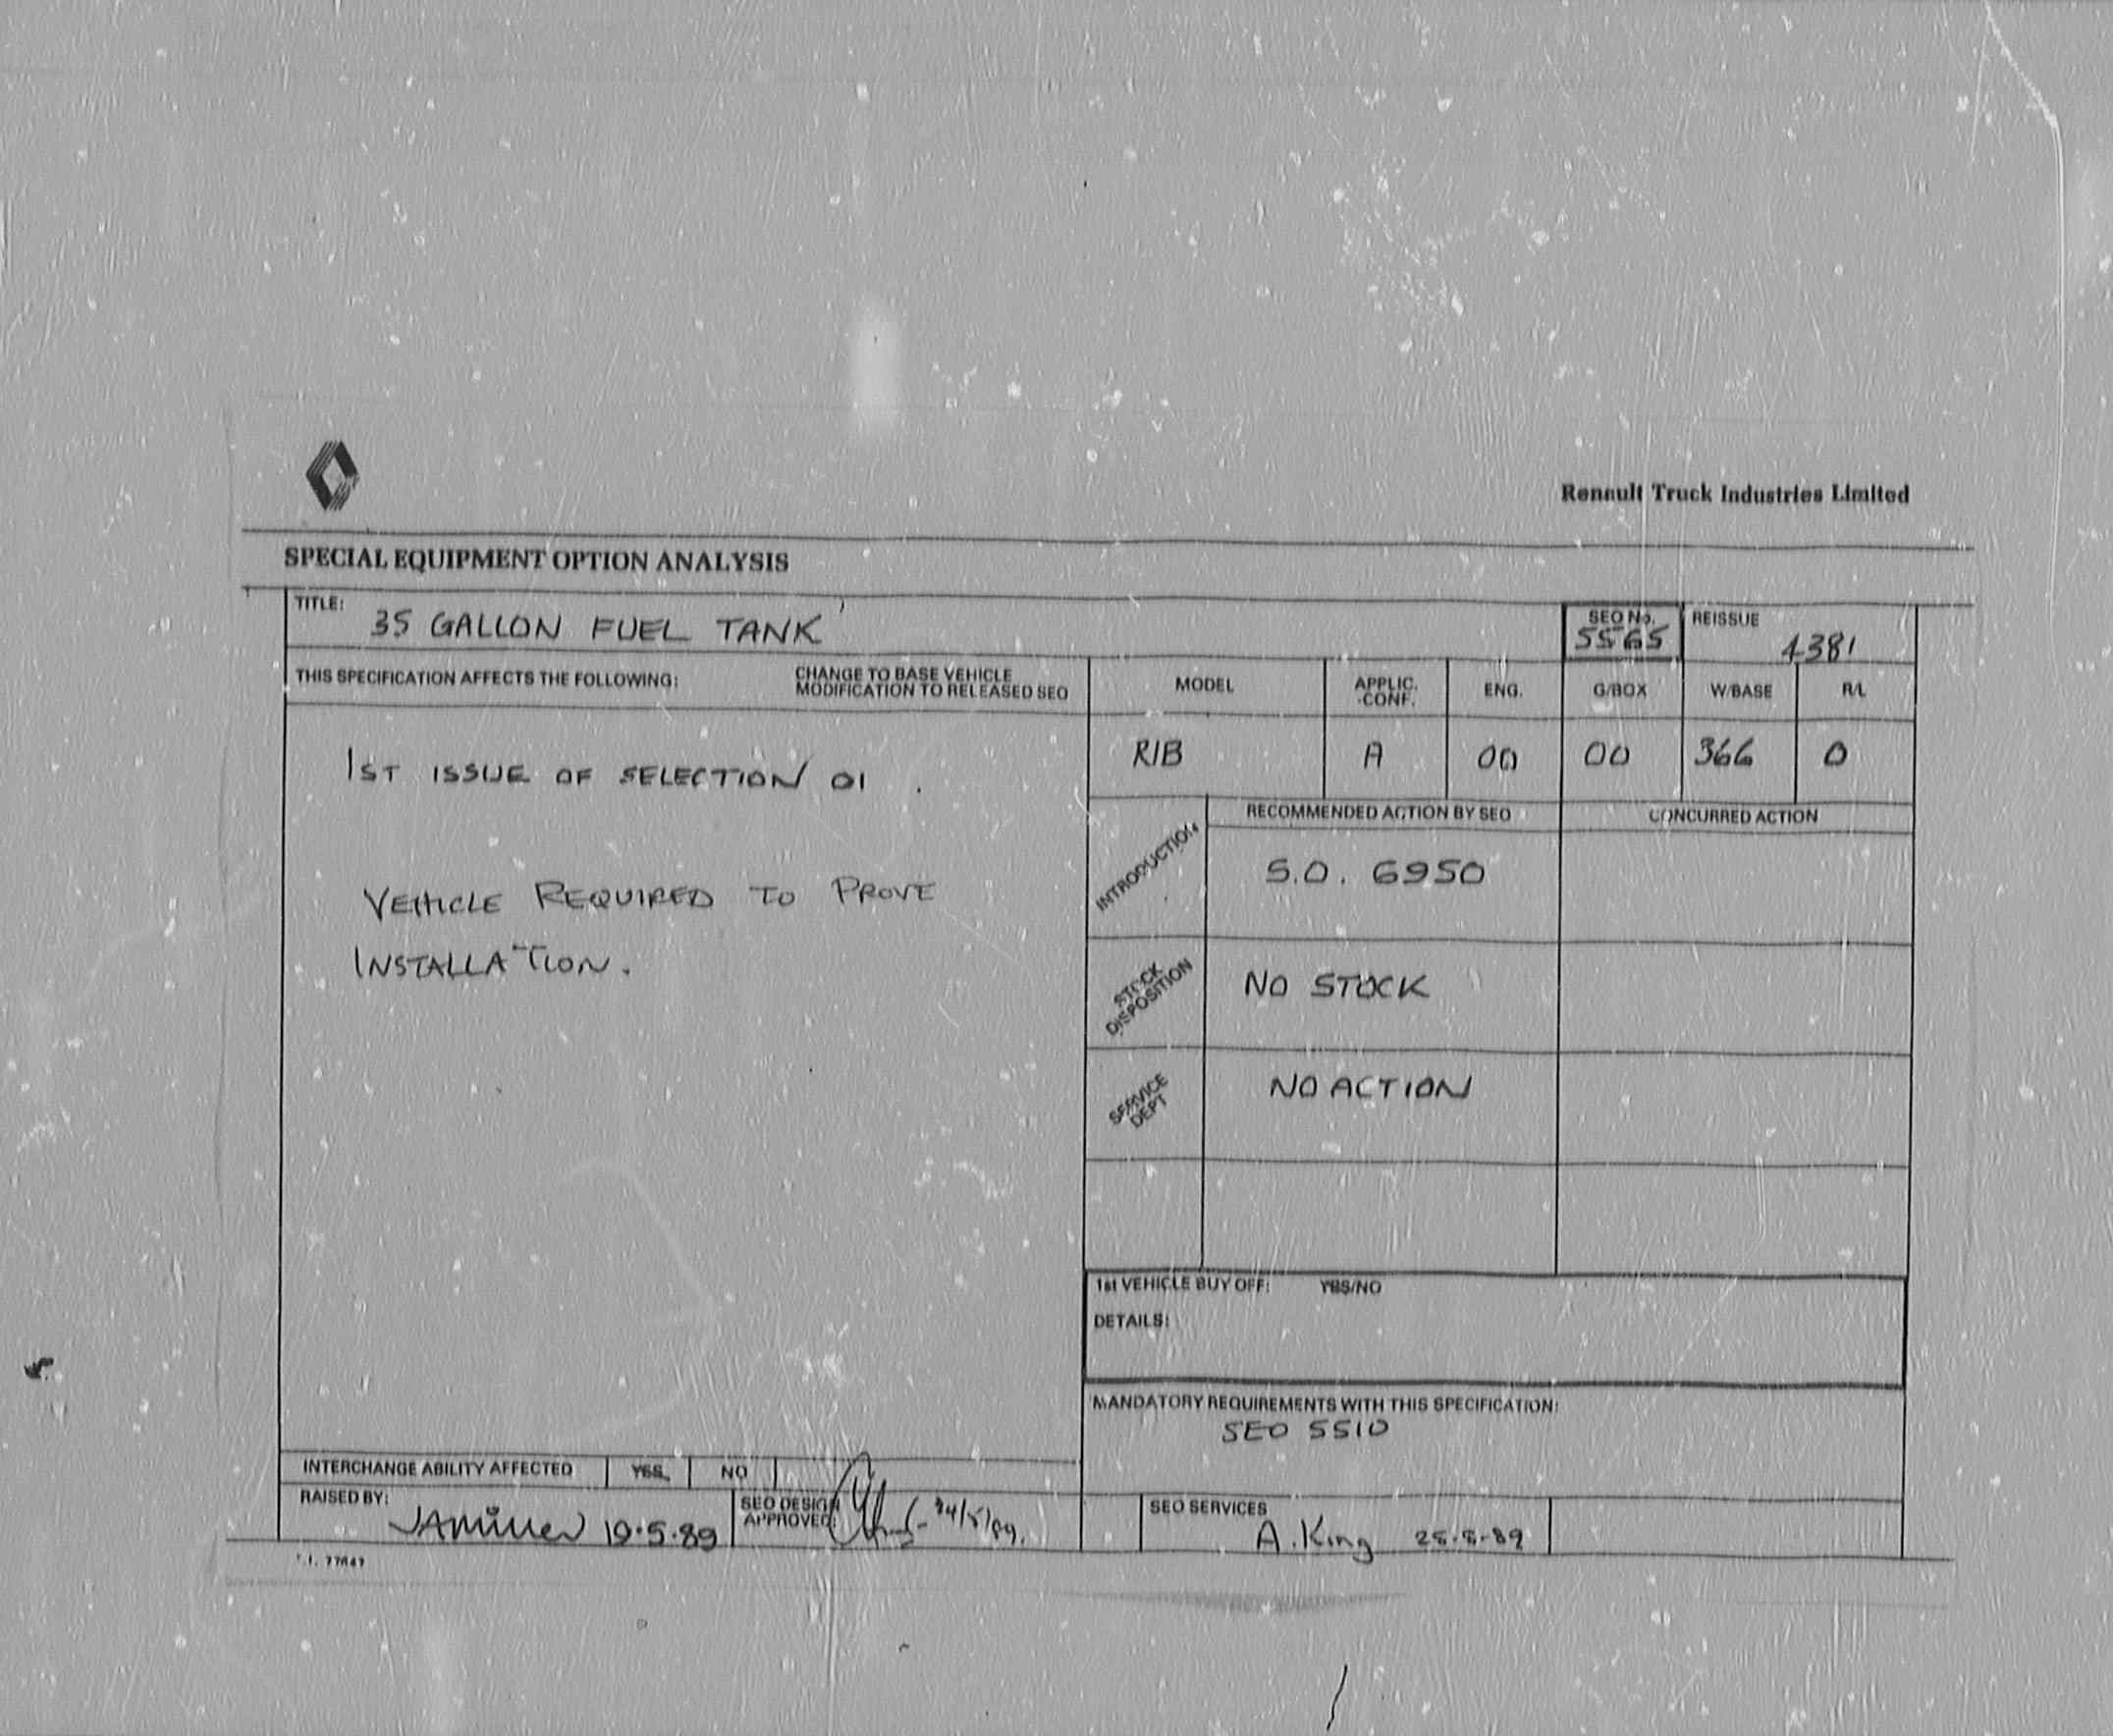 Renault Truck Industries Limited
SPECIAL EQUIPMENT OPTION ANALYSIS
TITLE: 35 GALLON FUEL TANK
SEO No. 5565
REISSUE 4381
THIS SPECIFICATION AFFECTS THE FOLLOWING:
CHANGE TO BASE VEHICLE
MODIFICATION TO RELEASED SEO
MODEL APPLIC. CONF. ENG. G/BOX W/BASE R/L
RIB A 00 00 366 0
1ST ISSUE OF SELECTION 01.
VEHICLE REQUIRED TO PROVE
INSTALLATION.
RECOMMENDED ACTION BY SEO CONCURRED ACTION
INTRODUCTION S.O. 6950
STOCK DISPOSITION NO STOCK
SERVICE DEPT NO ACTION
1st VEHICLE BUY OFF: YES/NO
DETAILS:
MANDATORY REQUIREMENTS WITH THIS SPECIFICATION:
SEO 5510
INTERCHANGE ABILITY AFFECTED YES NO
RAISED BY: JAMiller 19.5.89
SEO DESIGN APPROVED:
SEO SERVICES A. King